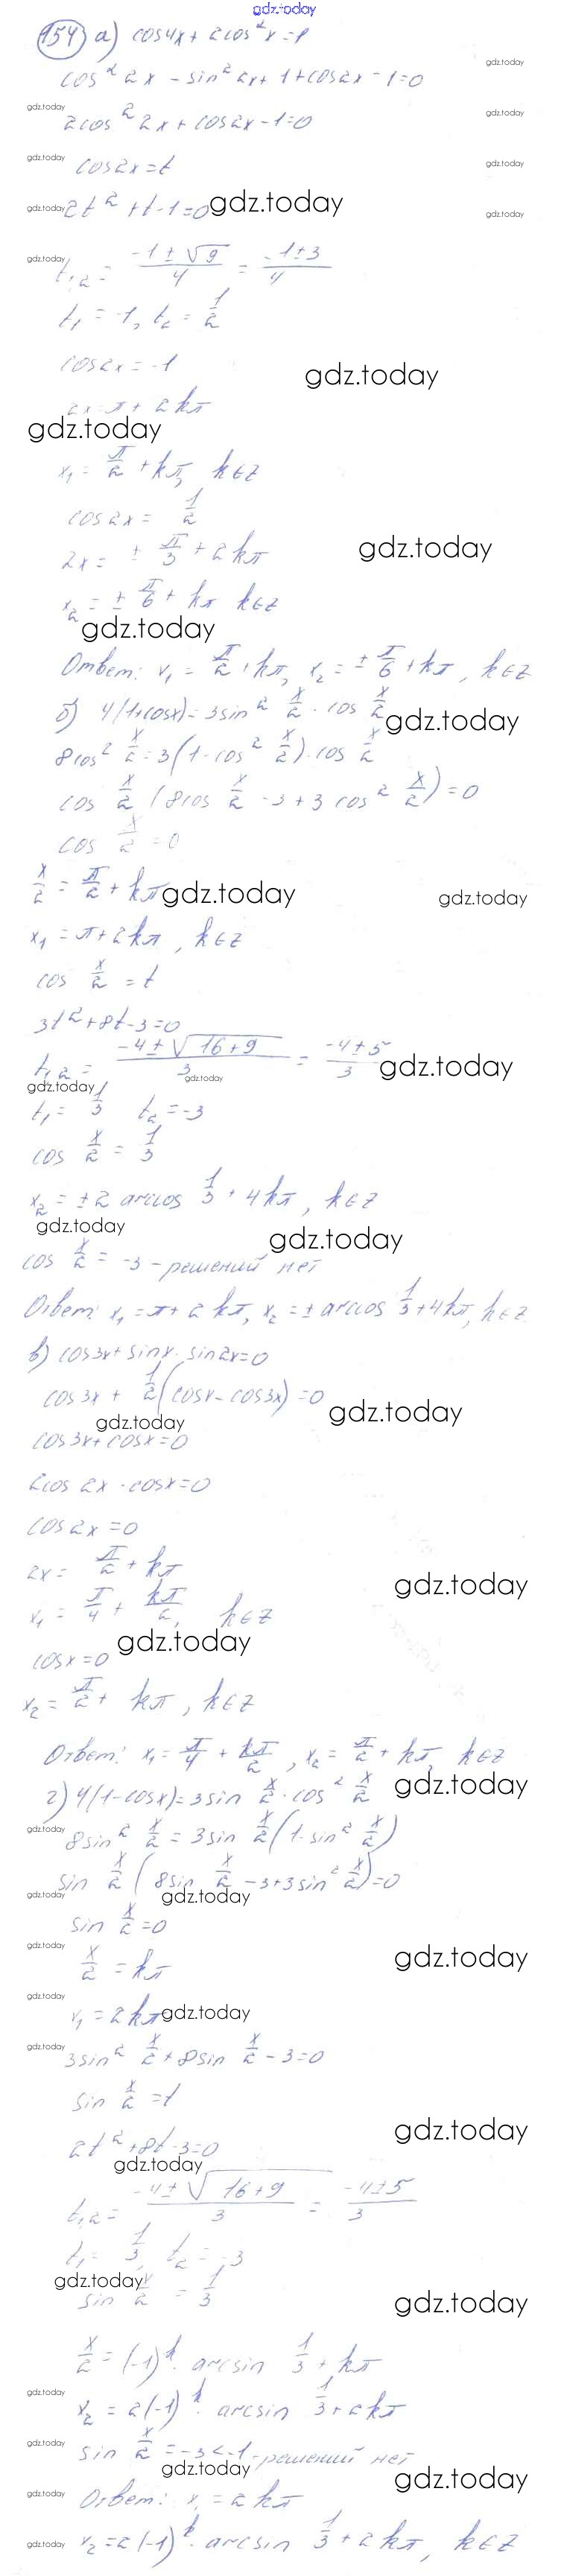 gdz.today
154 а) cos4x + 2cos²x = 1
cos²2x - sin²2x + 1 + cos2x - 1 = 0
2cos²2x + cos2x - 1 = 0
cos2x = t
2t² + t - 1 = 0
t₁,₂ = (-1 ± √9)/4 = (-1 ± 3)/4
t₁ = -1, t₂ = 1/2
cos2x = -1
2x = π + 2kπ
x₁ = π/2 + kπ, k∈Z
cos2x = 1/2
2x = ± π/3 + 2kπ
x₂ = ± π/6 + kπ k∈Z
Ответ: x₁ = π/2 + kπ, x₂ = ± π/6 + kπ, k∈Z
б) 4(1+cosx) = 3sin² x/2 · cos x/2
8cos² x/2 = 3(1 - cos² x/2) · cos x/2
cos x/2 (8cos x/2 - 3 + 3cos² x/2) = 0
cos x/2 = 0
x/2 = π/2 + kπ
x₁ = π + 2kπ, k∈Z
cos x/2 = t
3t² + 8t - 3 = 0
t₁,₂ = (-4 ± √(16+9))/3 = (-4 ± 5)/3
t₁ = 1/3 t₂ = -3
cos x/2 = 1/3
x₂ = ± 2 arccos 1/3 + 4kπ, k∈Z
cos x/2 = -3 - решений нет
Ответ: x₁ = π + 2kπ, x₂ = ± arccos 1/3 + 4kπ, k∈Z
в) cos3x + sinx · sin2x = 0
cos3x + 1/2(cosx - cos3x) = 0
cos3x + cosx = 0
2cos2x · cosx = 0
cos2x = 0
2x = π/2 + kπ
x₁ = π/4 + kπ/2, k∈Z
cosx = 0
x₂ = π/2 + kπ, k∈Z
Ответ: x₁ = π/4 + kπ/2, x₂ = π/2 + kπ, k∈Z
г) 4(1-cosx) = 3sin x/2 · cos² x/2
8sin² x/2 = 3sin x/2 (1 - sin² x/2)
sin x/2 (8sin x/2 - 3 + 3sin² x/2) = 0
sin x/2 = 0
x/2 = kπ
x₁ = 2kπ
3sin² x/2 + 8sin x/2 - 3 = 0
sin x/2 = t
2t² + 8t - 3 = 0
t₁,₂ = (-4 ± √(16+9))/3 = (-4 ± 5)/3
t₁ = 1/3, t₂ = -3
sin x/2 = 1/3
x/2 = (-1)ᵏ · arcsin 1/3 + kπ
x₂ = 2(-1)ᵏ · arcsin 1/3 + 2kπ
sin x/2 = -3 < -1 - решений нет
Ответ: x₁ = 2kπ
x₂ = 2(-1)ᵏ · arcsin 1/3 + 2kπ, k∈Z